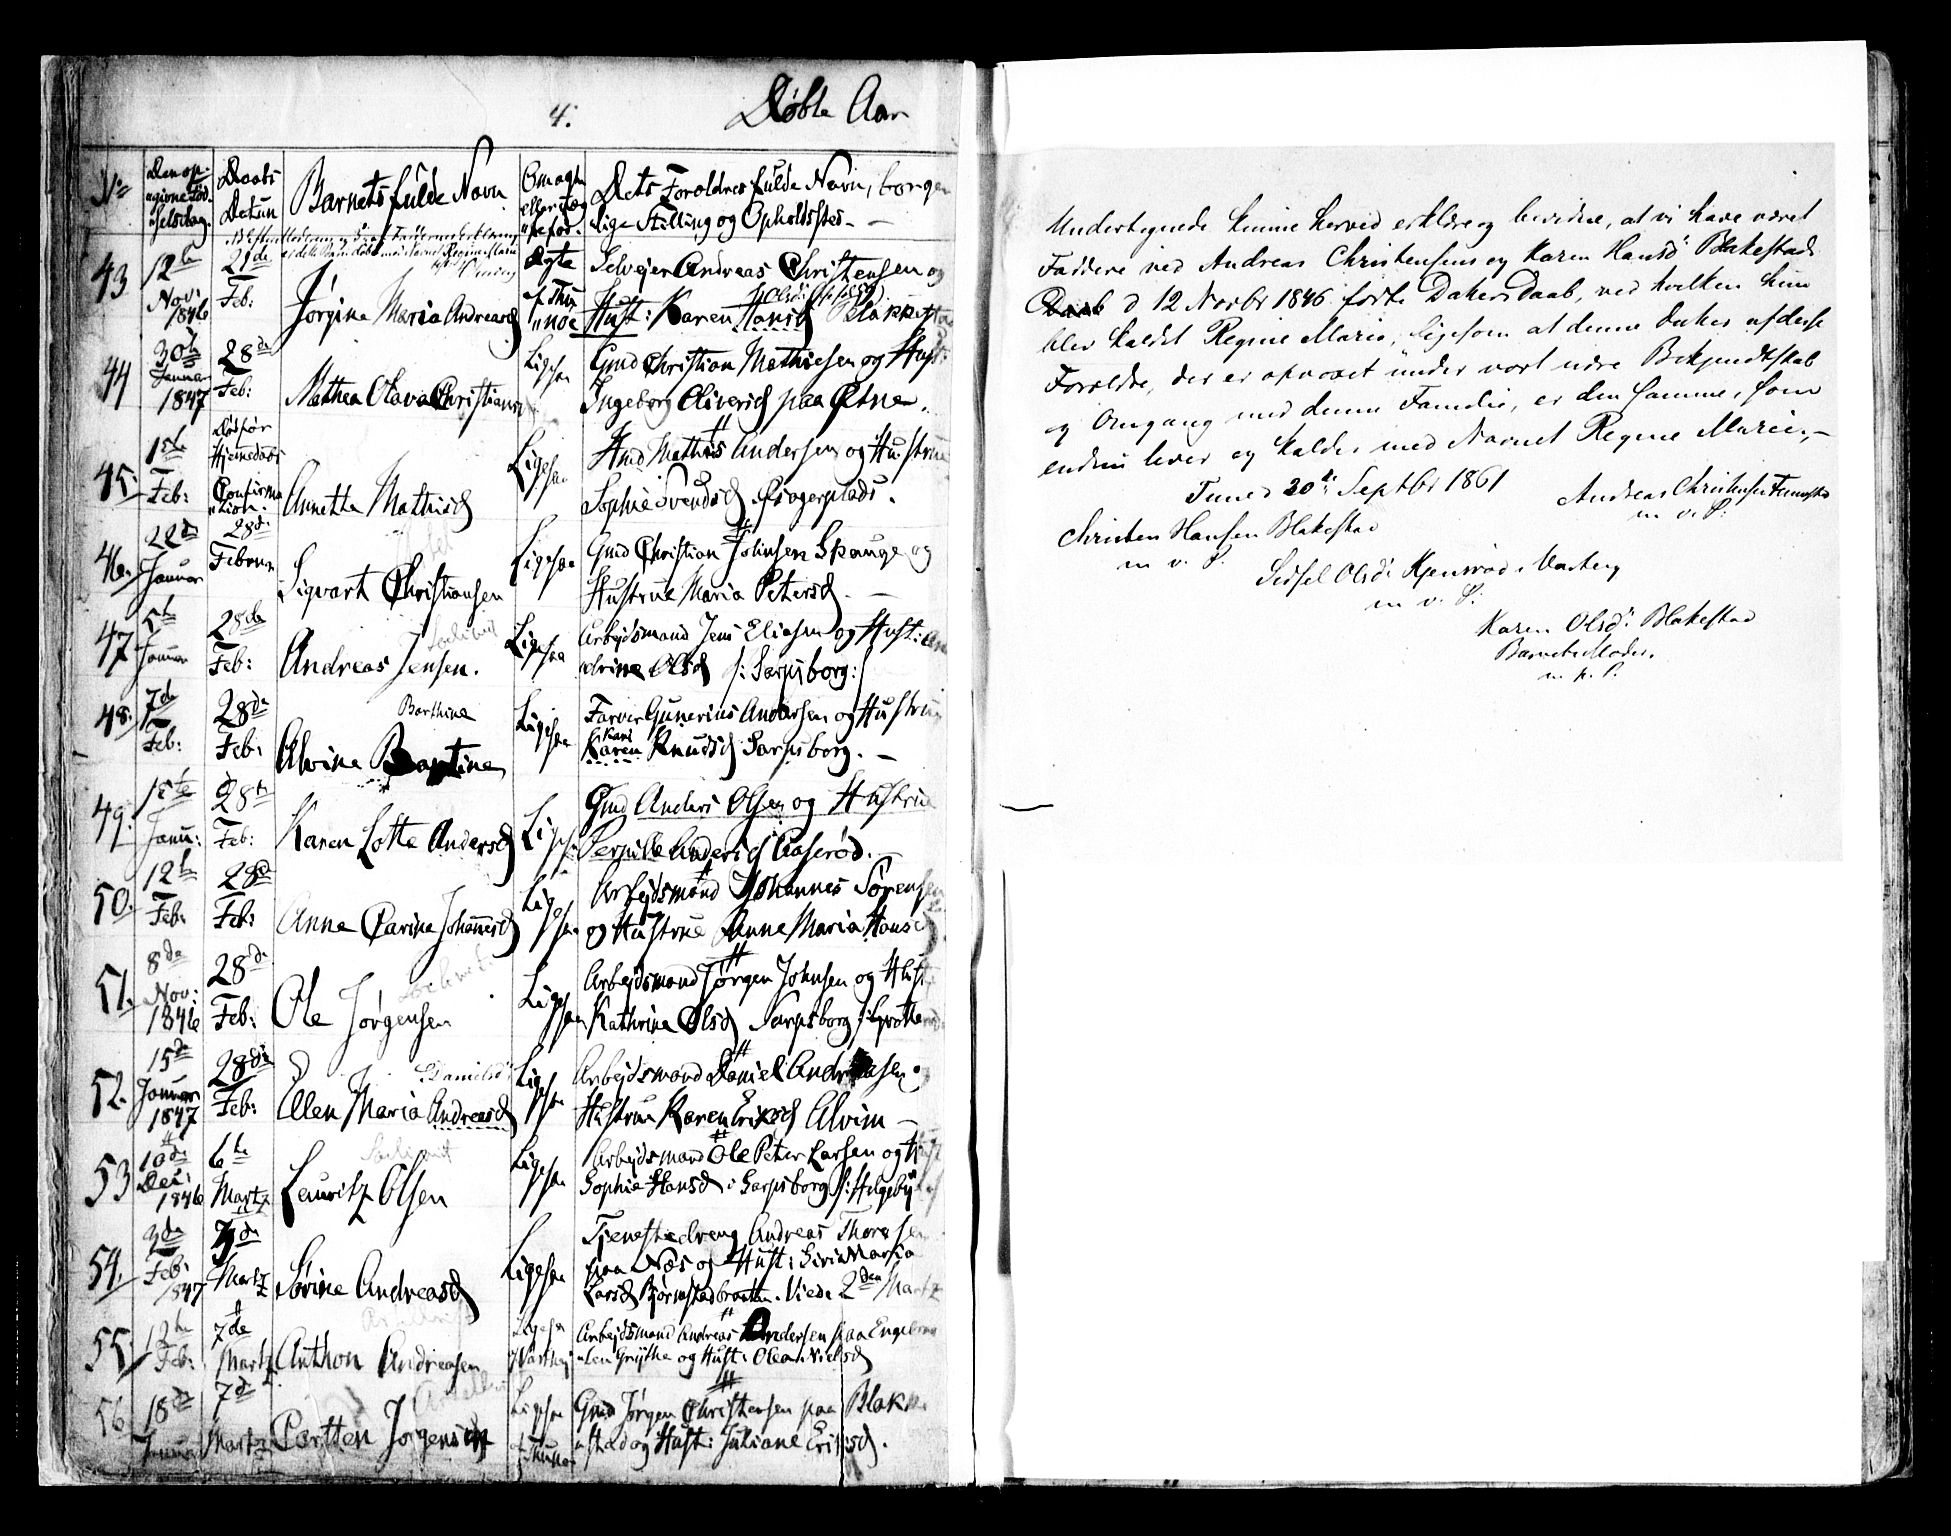 4.
Døbte Aar
No
Den op-
givne Fød-
selsdag.
Daabs
Datum
Barnets fulde Navn
Om ægte
eller uæg-
te fød.
Dets Forældres fulde Navn, borger-
lige Stilling og Opholdssted
43
12te
Nov:
1846
21de
Feb:
Jørgine Maria Andreasd
Ægte
f. Thu
nøe
Selvejer Andreas Christensen og
Hust: Karen Hansd Blakkestad
44
30te
Januar
1847
28de
Feb:
Mathea Olava Christiansd
Ligesaa
Gmd Christian Mathiesen og Hust:
Ingeborg Oliversd paa Ætne.
45.
1ste
Feb:
Døbt før
Hjemedaab
Confirma
tion.
Annette Mathisd
Ligesaa
Hmd Mathis Andersen og Hustrue
Sophie Svendsd
46.
22de
Januar
28de
Februar
Sigvart Christiansen
Ligesaa
Gmd Christian Johnsen Spange og
Hustrue Maria Petersd.
47
5te
Januar
28de
Feb:
Andreas Jensen.
Ligesaa
Arbejdsmand Jens Eliasen og Hust: An
drine Olsd /: Sarpsborg:/
48.
7de
Feb:
28de
Feb:
Barthine
Alvine Bartine
Ligesaa
Farver Gunerius Andersen og Hustrue
Kari
Karen Knudsd Sarpsborg.
49.
18te
Janu:
28de
Feb:
Karen Lotte Andersd
Liges:
Gmd Anders Olsen og Hustrue
Pernille Andersd Aaserød.
50.
12te
Feb:
28de
Feb:
Anne Carine Johannesd
Ligesaa
Arbejdsmand Johannes Sørensen
og Hustrue Anne Maria Hansd.
51.
8de
Nov:
1846
28de
Feb:
Ole Jørgensen
Ligesaa
Arbejdsmand Jørgen Johnsen og Hust:
Kathrine Olsd Sarpsborg
52.
15de
Januar
1847
28de
Feb:
Danielsd
Ellen Maria Andreasd
Ligesaa
Arbejdsmand Daniel Andreasen og
Hustrue Karen Eriksd Alvim
53
10de
Dec:
1846
6te
Martz
Lauritz Olsen
Ligesaa
Arbejdsmand Ole Peter Larsen og Hust
Sophie Hansd i Sarpsborg
54.
3de
Feb:
1847
7de
Martz
Sørine Andreasd
Ligesaa
Tjenestedreng Andreas Thoresen
paa Næs og Hust: Siri Maria
Larsd Bjørnstadbraaten. Viede 2den Martz
55
12te
Feb:
7de
Martz
Anthon Andreasen
Ligesaa
Arbejdsmand Andreas Andersen paa Engebra
len Grythe og Hust: Olea Nielsd
56
18de
Januar
7de
Martz
Cartten Jørgensen
Ligesaa
Gmd Jørgen Christensen paa Blakke
stad og Hust: Juliane Eriksd.
Undertegnede kunne herved erklære og bevidne, at vi have været
Faddere ved Andreas Christensens og Karen Hansd: Blakestads
d 12 Novbr 1846 fødte Datters Daab, ved hvilken hun
blev kaldt Regine Marie, ligesom at denne Datter af disse
Forældre, der er opvoxet under vort nære Bekjendtskab
og Omgang med denne Familie, er den samme, som
endnu lever og kaldes med Navnet Regine Marie.
Tune d 20de Septbr 1861
Andreas Christensen
m. v. P.
Christen Hansen Blakestad
m. v. P.
Sidsel Olsd:
m. v. P.
Karen Olsd: Blakestad
Barnets Moder.
m. p. P.